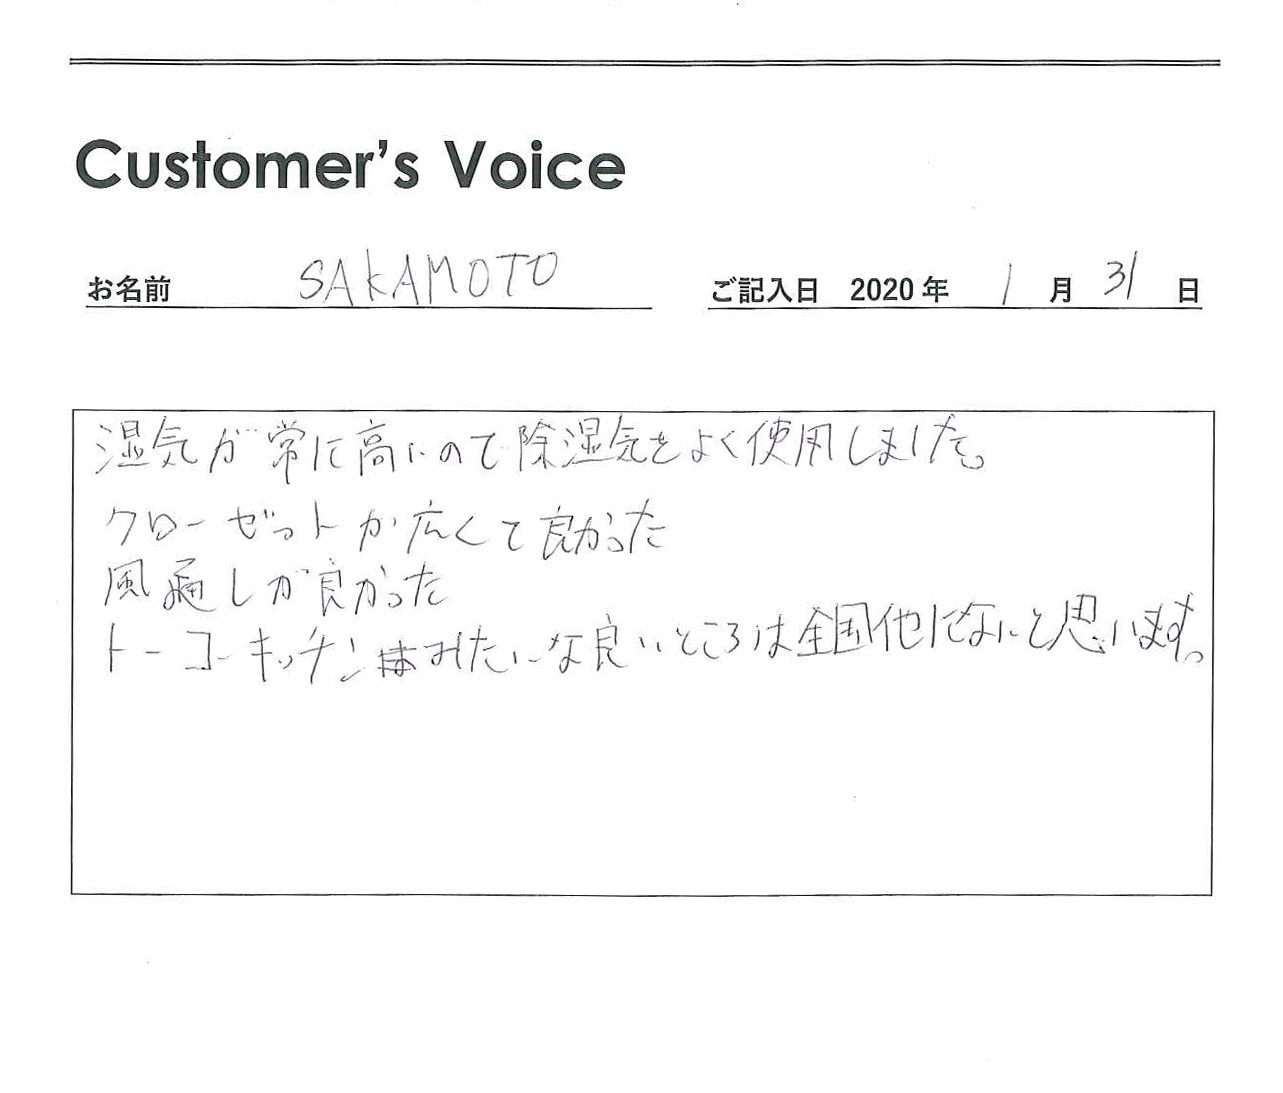 Customer's Voice
お名前 SAKAMOTO ご記入日 2020年 1月 31日
湿気が常に高いので除湿気をよく使用しました。
クローゼットが広くて良かった
風通しが良かった
トーコーキッチンみたいな良いところは全国他にないと思います。